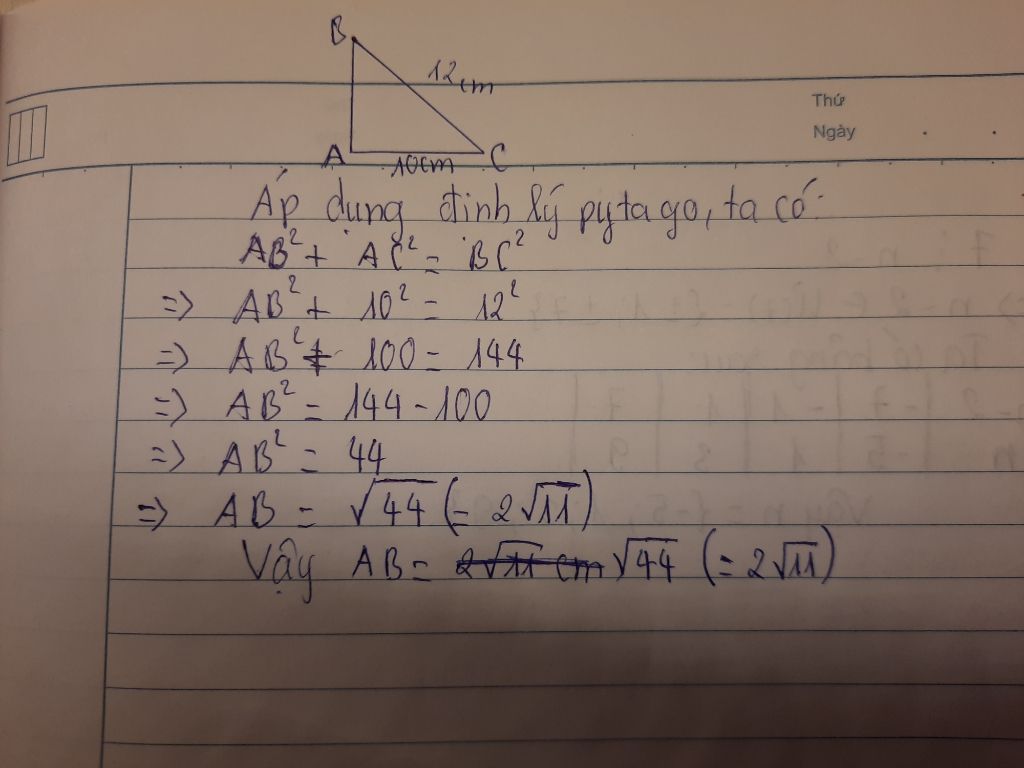 B
12cm
Thứ
Ngày
A
10cm
C
Áp dụng định lý pytago, ta có:
AB² + AC² = BC²
=> AB² + 10² = 12²
=> AB² + 100 = 144
=> AB² = 144 - 100
=> AB² = 44
=> AB = √44 (= 2√11)
Vậy AB = 2√11 cm √44 (= 2√11)